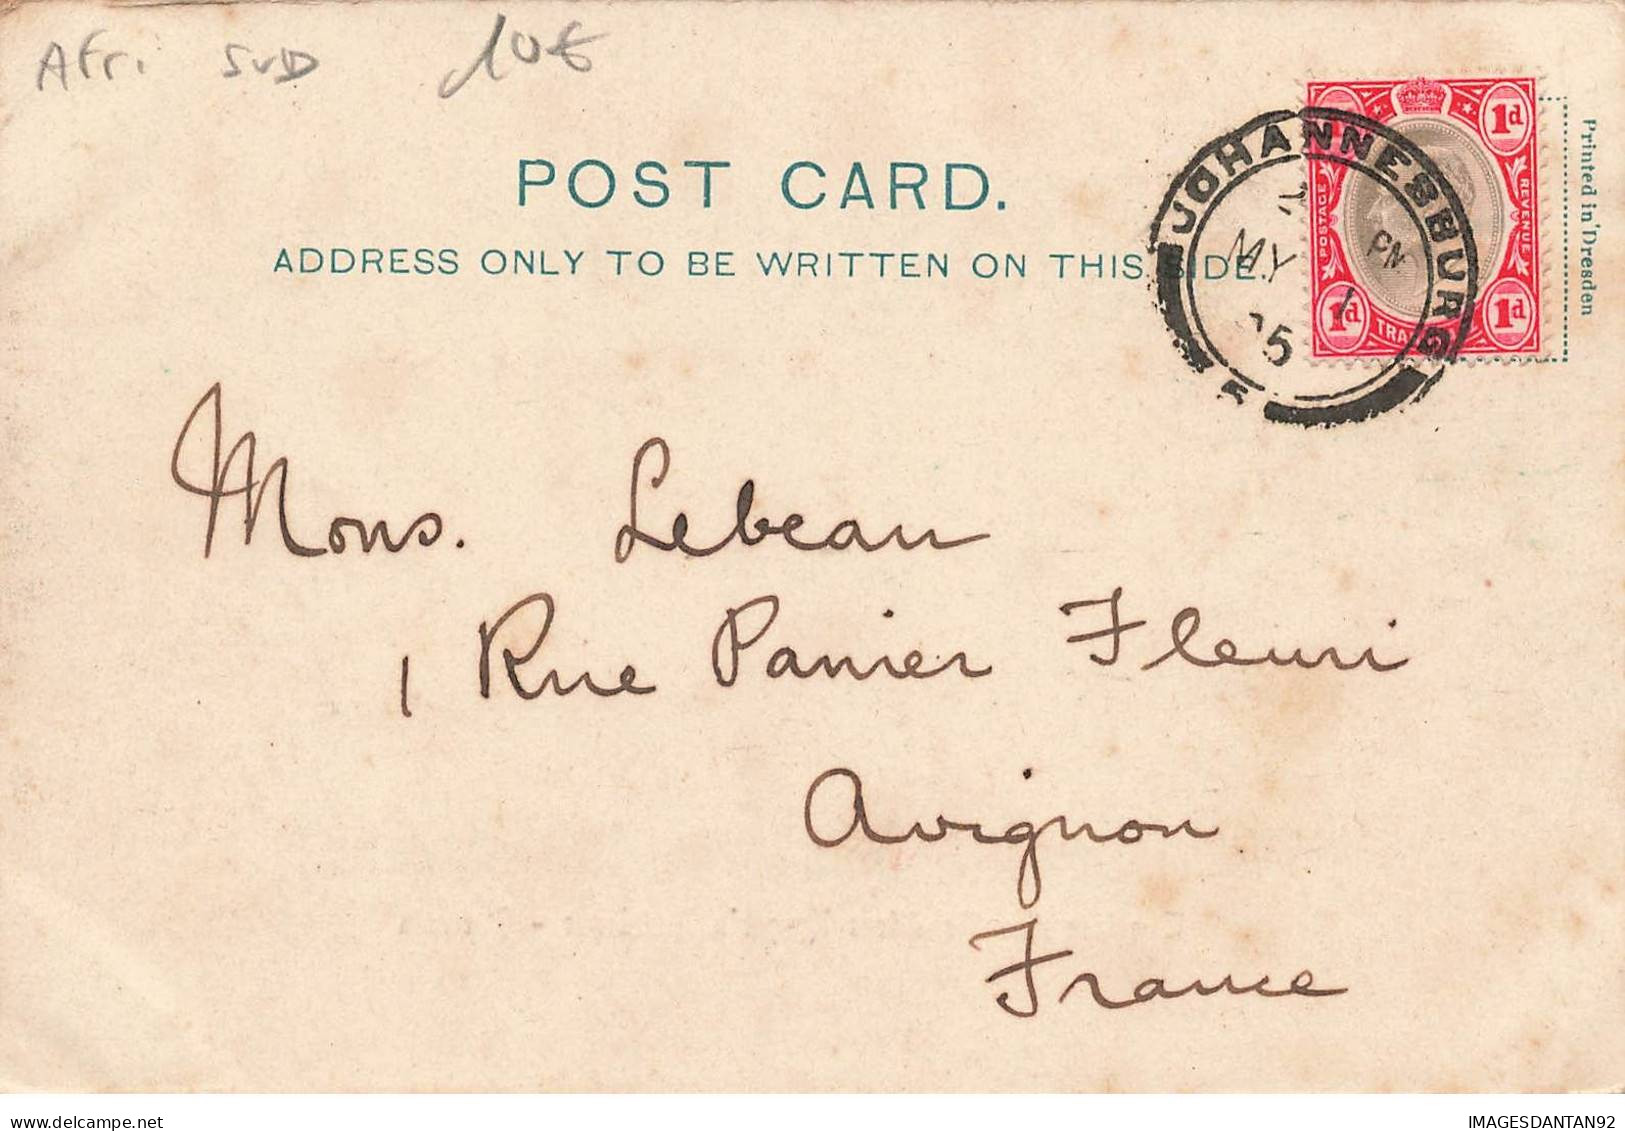 Afr. SUD 10€
POST CARD.
ADDRESS ONLY TO BE WRITTEN ON THIS SIDE.
JOHANNESBURG
2 PM
MY 1
05
1d
POSTAGE
REVENUE
1d 1d
Printed in Dresden
Mons. Lebeau
1 Rue Panier Fleuri
Avignon
France
IMAGESDANTAN92